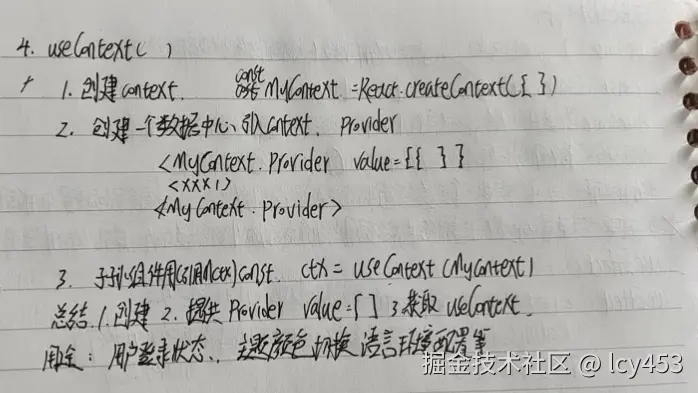 4. useContext( )
1. 创建context. const MyContext = React.createContext({ })
2. 创建一个数据中心,引入Context. Provider
<MyContext.Provider value={{ }}
<XXX1>
<MyContext.Provider>
3. 子孙组件用 const ctx = useContext(MyContext)
总结. 1.创建 2. 提供 Provider value={} 3 获取 useContext.
用途: 用户登录状态、主题颜色切换 语言环境配置等
掘金技术社区 @ lcy453